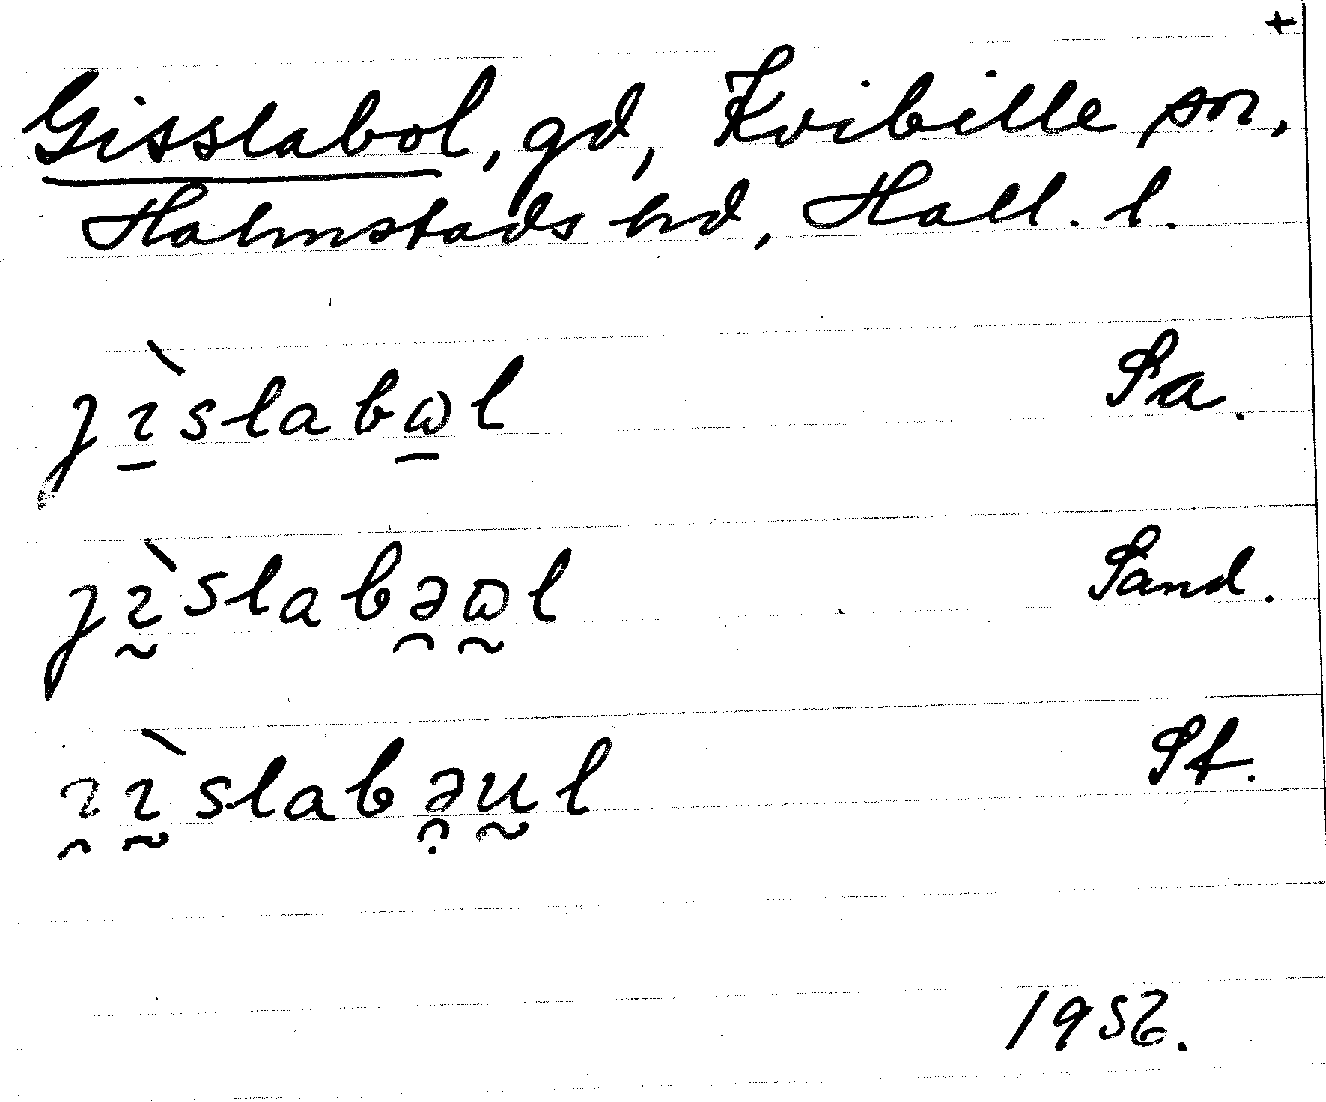 +
Gisslabol, gd, Kvibille sn,
Halmstads hd, Hall. l.
ȷɪ̠̀slabɷ̠l Sa.
ȷɪ̰̀slabə̯ɷ̰l Sand.
ɪ̯ɪ̰̀slabə̯̣ṵl St.
1952.